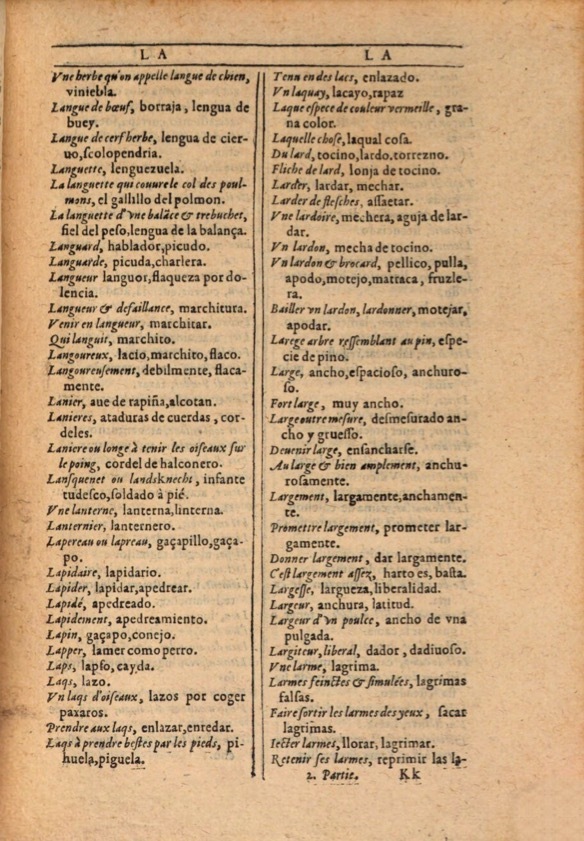 LA
Vne herbe qu'on appelle langue de chien,
viniebla.
Langue de bœuf, borraja, lengua de
buey.
Langue de cerf herbe, lengua de cier-
uo, scolopendria.
Languette, lenguezuela.
La languette qui couure le col des poul-
mons, el gallillo del polmon.
La languette d'vne balãce & trebuchet,
fiel del peſo, lengua de la balança.
Languard, hablador, picudo.
Languarde, picuda, charlera.
Langueur languor, flaqueza por do-
lencia.
Langueur & defaillance, marchitura.
Venir en langueur, marchitar.
Qui languit, marchito.
Langoureux, lacio, marchito, flaco.
Langoureusement, debilmente, flaca-
mente.
Lanier, aue de rapiña, alcotan.
Lanieres, ataduras de cuerdas, cor-
deles.
Laniere ou longe à tenir les oiseaux sur
le poing, cordel de halconero.
Lansquenet ou landsknecht, infante
tudesco, soldado à pié.
Vne lanterne, lanterna, linterna.
Lanternier, lanternero.
Lapereau ou lapreau, gaçapillo, gaça-
po.
Lapidaire, lapidario.
Lapider, lapidar, apedrear.
Lapidé, apedreado.
Lapidement, apedreamiento.
Lapin, gaçapo, conejo.
Lapper, lamer como perro.
Laps, lapſo, cayda.
Laqs, lazo.
Vn laqs d'oiseaux, lazos por coger
paxaros.
Prendre aux laqs, enlazar, enredar.
Laqs à prendre bestes par les pieds, pi-
huela, piguela.
LA
Tenu en des lacs, enlazado.
Vn laquay, lacayo, rapaz
Laque espece de couleur vermeille, gra-
na color.
Laquelle chose, laqual coſa.
Du lard, tocino, lardo, torrezno.
Fliche de lard, lonja de tocino.
Larder, lardar, mechar.
Larder de flesches, aſſaetar.
Vne lardoire, mechera, aguja de lar-
dar.
Vn lardon, mecha de tocino.
Vn lardon & brocard, pellico, pulla,
apodo, motejo, matraca, fruzle-
ra.
Bailler vn lardon, lardonner, motejar,
apodar.
Larege arbre ressemblant au pin, eſpe-
cie de pino.
Large, ancho, eſpacioſo, anchuro-
ſo.
Fort large, muy ancho.
Large outre mesure, deſmeſurado an-
cho y grueſſo.
Deuenir large, enſancharſe.
Au large & bien amplement, anchu-
roſamente.
Largement, largamente, anchamen-
te.
Promettre largement, prometer lar-
gamente.
Donner largement, dar largamente.
C'est largement assez, harto es, baſta.
Largesse, largueza, liberalidad.
Largeur, anchura, latitud.
Largeur d'vn poulce, ancho de vna
pulgada.
Largiteur, liberal, dador, dadiuoſo.
Vne larme, lagrima.
Larmes feinctes & simulées, lagrimas
falſas.
Faire sortir les larmes des yeux, ſacar
lagrimas.
Iecter larmes, llorar, lagrimar.
Retenir ses larmes, reprimir las la-
2. Partie. Kk